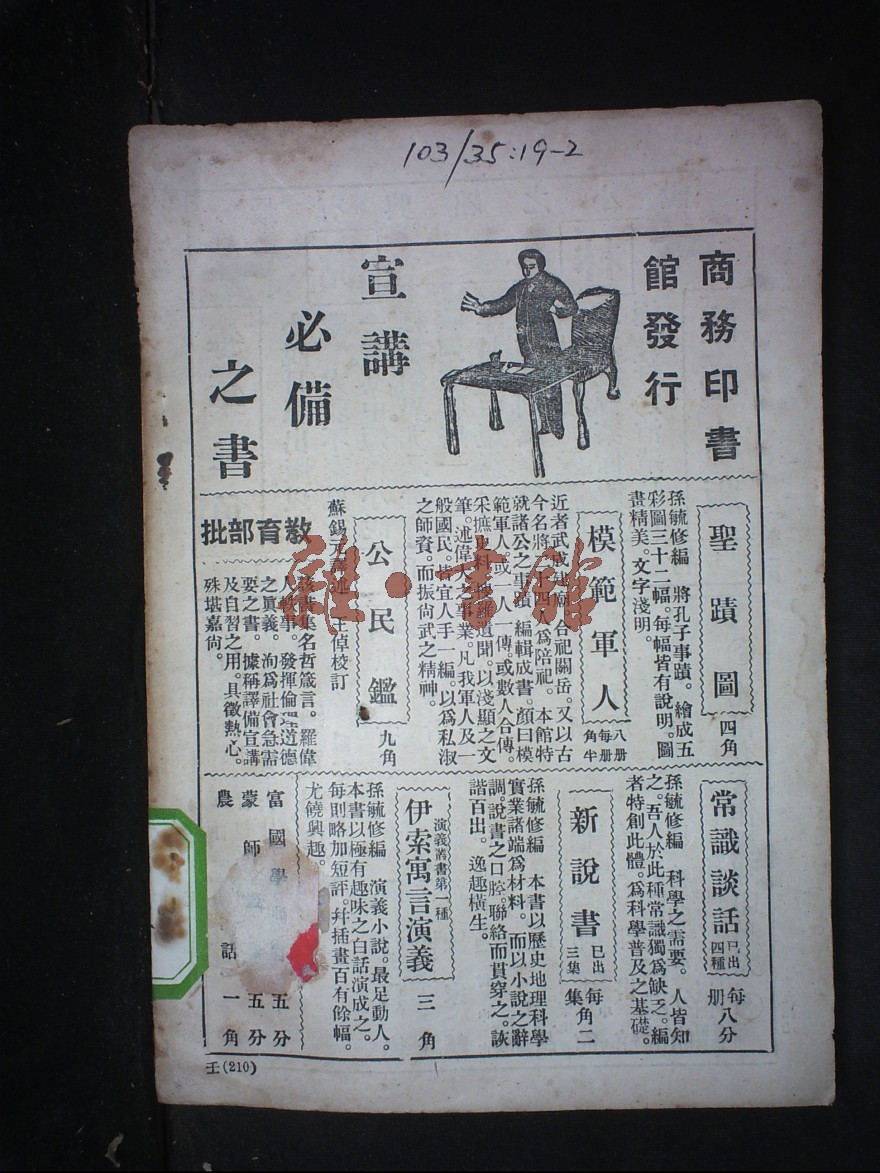 103/35:19-2
商務印書
館發行
宣講
必備
之書
聖蹟圖
四角
孫毓修編 將孔子事蹟。繪成五
彩圖三十二幅。每幅皆有說明。圖
畫精美。文字淺明。
模範軍人
八册
每册
角半
近者武成建廟。合祀關岳。又以古
今名將 十四人爲陪祀。本館特
就諸公之事蹟。編輯成書。顏曰模
範軍人。或一人一傳。或數人合傳。
采摭史料。搜羅遺聞。以淺顯之文
筆。述偉人之事業。凡我軍人及一
般國民。皆宜人手一編。以爲私淑
之師資。而振尚武之精神。
公民鑑
九角
蘇錫元譯述 王倬校訂
教育部批
該書集名哲箴言。羅偉
人軼事。發揮倫理道德
之眞義。洵爲社會急需
要之書。據稱譯備宣講
及自習之用。具徵熱心。
殊堪嘉尚。
常識談話
已出
四種
每册
八分
孫毓修編 科學之需要。人皆知
之。吾人於此種常識獨爲缺乏。編
者特創此體。爲科學普及之基礎。
新說書
已出
三集
每集
二角
孫毓修編 本書以歷史地理科學
實業諸端爲材料。而以小說之辭
調。說書之口腔。聯絡而貫穿之。詼
諧百出。逸趣橫生。
演義叢書第一種
伊索寓言演義
三角
孫毓修編 演義小說。最足動人。
本書以極有趣味之白話演成之。
每則略加短評。幷插畫百有餘幅。
尤饒興趣。
富國學 五分
蒙師 五分
農 話 一角
王(210)
雜·書館